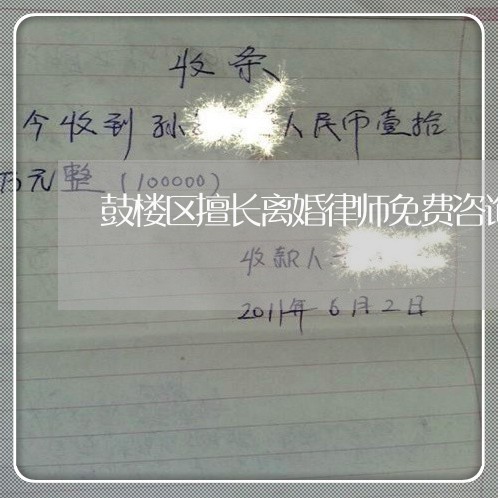 收条
今收到孙 人民币壹拾
万元整 (100000)
鼓楼区擅长离婚律师免费咨询
收款人
2011年6月2日